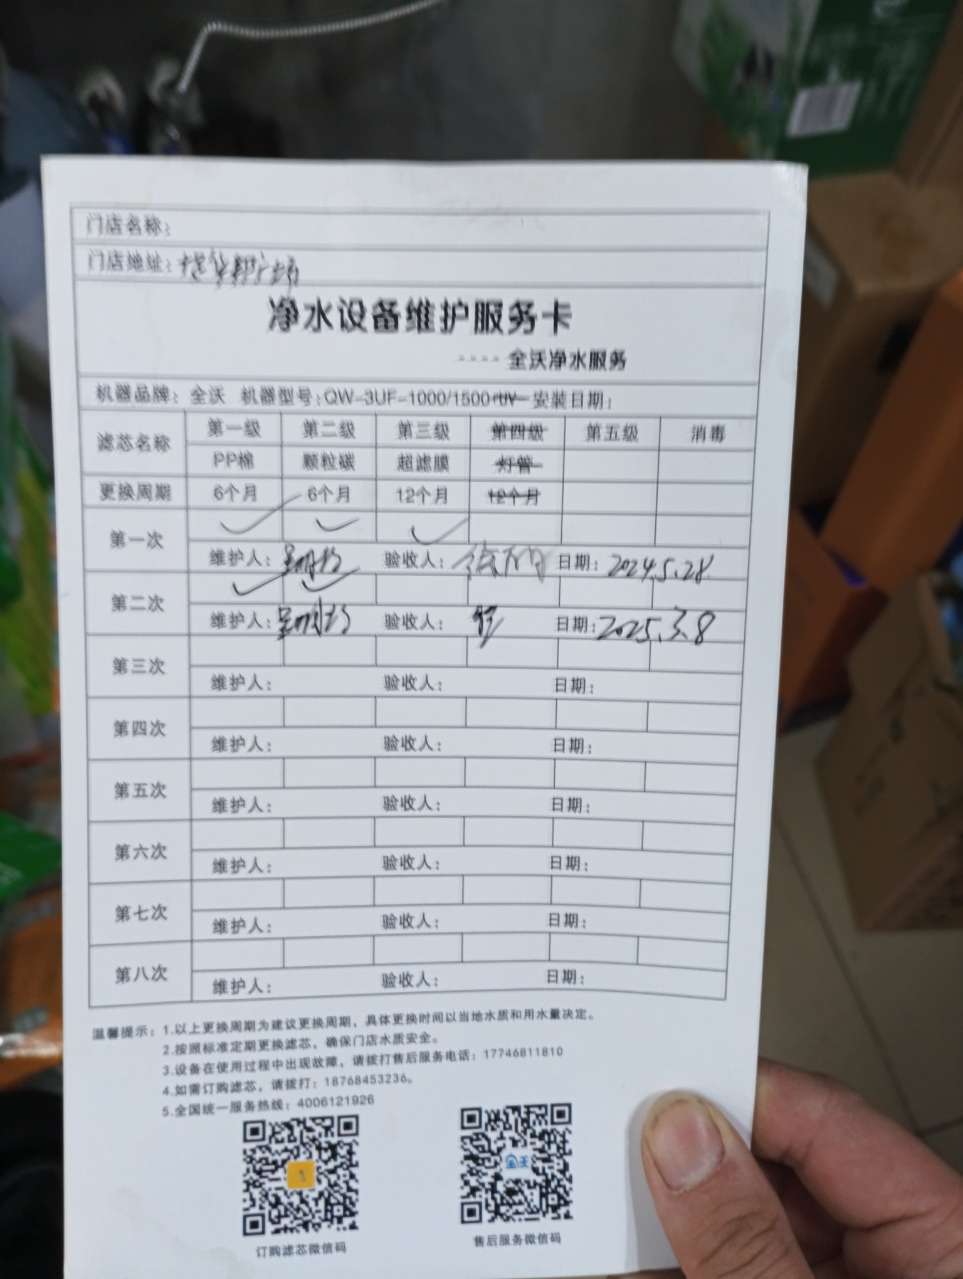 门店名称：
门店地址：
净水设备维护服务卡
---- 全沃净水服务
机器品牌：全沃 机器型号：QW-3UF-1000/1500 安装日期：
滤芯名称 第一级 第二级 第三级 第四级 第五级 消毒
PP棉 颗粒碳 超滤膜 灯管
更换周期 6个月 6个月 12个月 12个月
第一次
维护人： 验收人： 日期：2024.5.28
第二次
维护人： 验收人： 日期：2025.3.8
第三次
维护人： 验收人： 日期：
第四次
维护人： 验收人： 日期：
第五次
维护人： 验收人： 日期：
第六次
维护人： 验收人： 日期：
第七次
维护人： 验收人： 日期：
第八次
维护人： 验收人： 日期：
温馨提示：1.以上更换周期为建议更换周期，具体更换时间以当地水质和用水量决定。
2.按照标准定期更换滤芯，确保门店水质安全。
3.设备在使用过程中出现故障，请拨打售后服务电话：17746811810
4.如需订购滤芯，请拨打：18768453236。
5.全国统一服务热线：4006121926
订购滤芯微信码
售后服务微信码